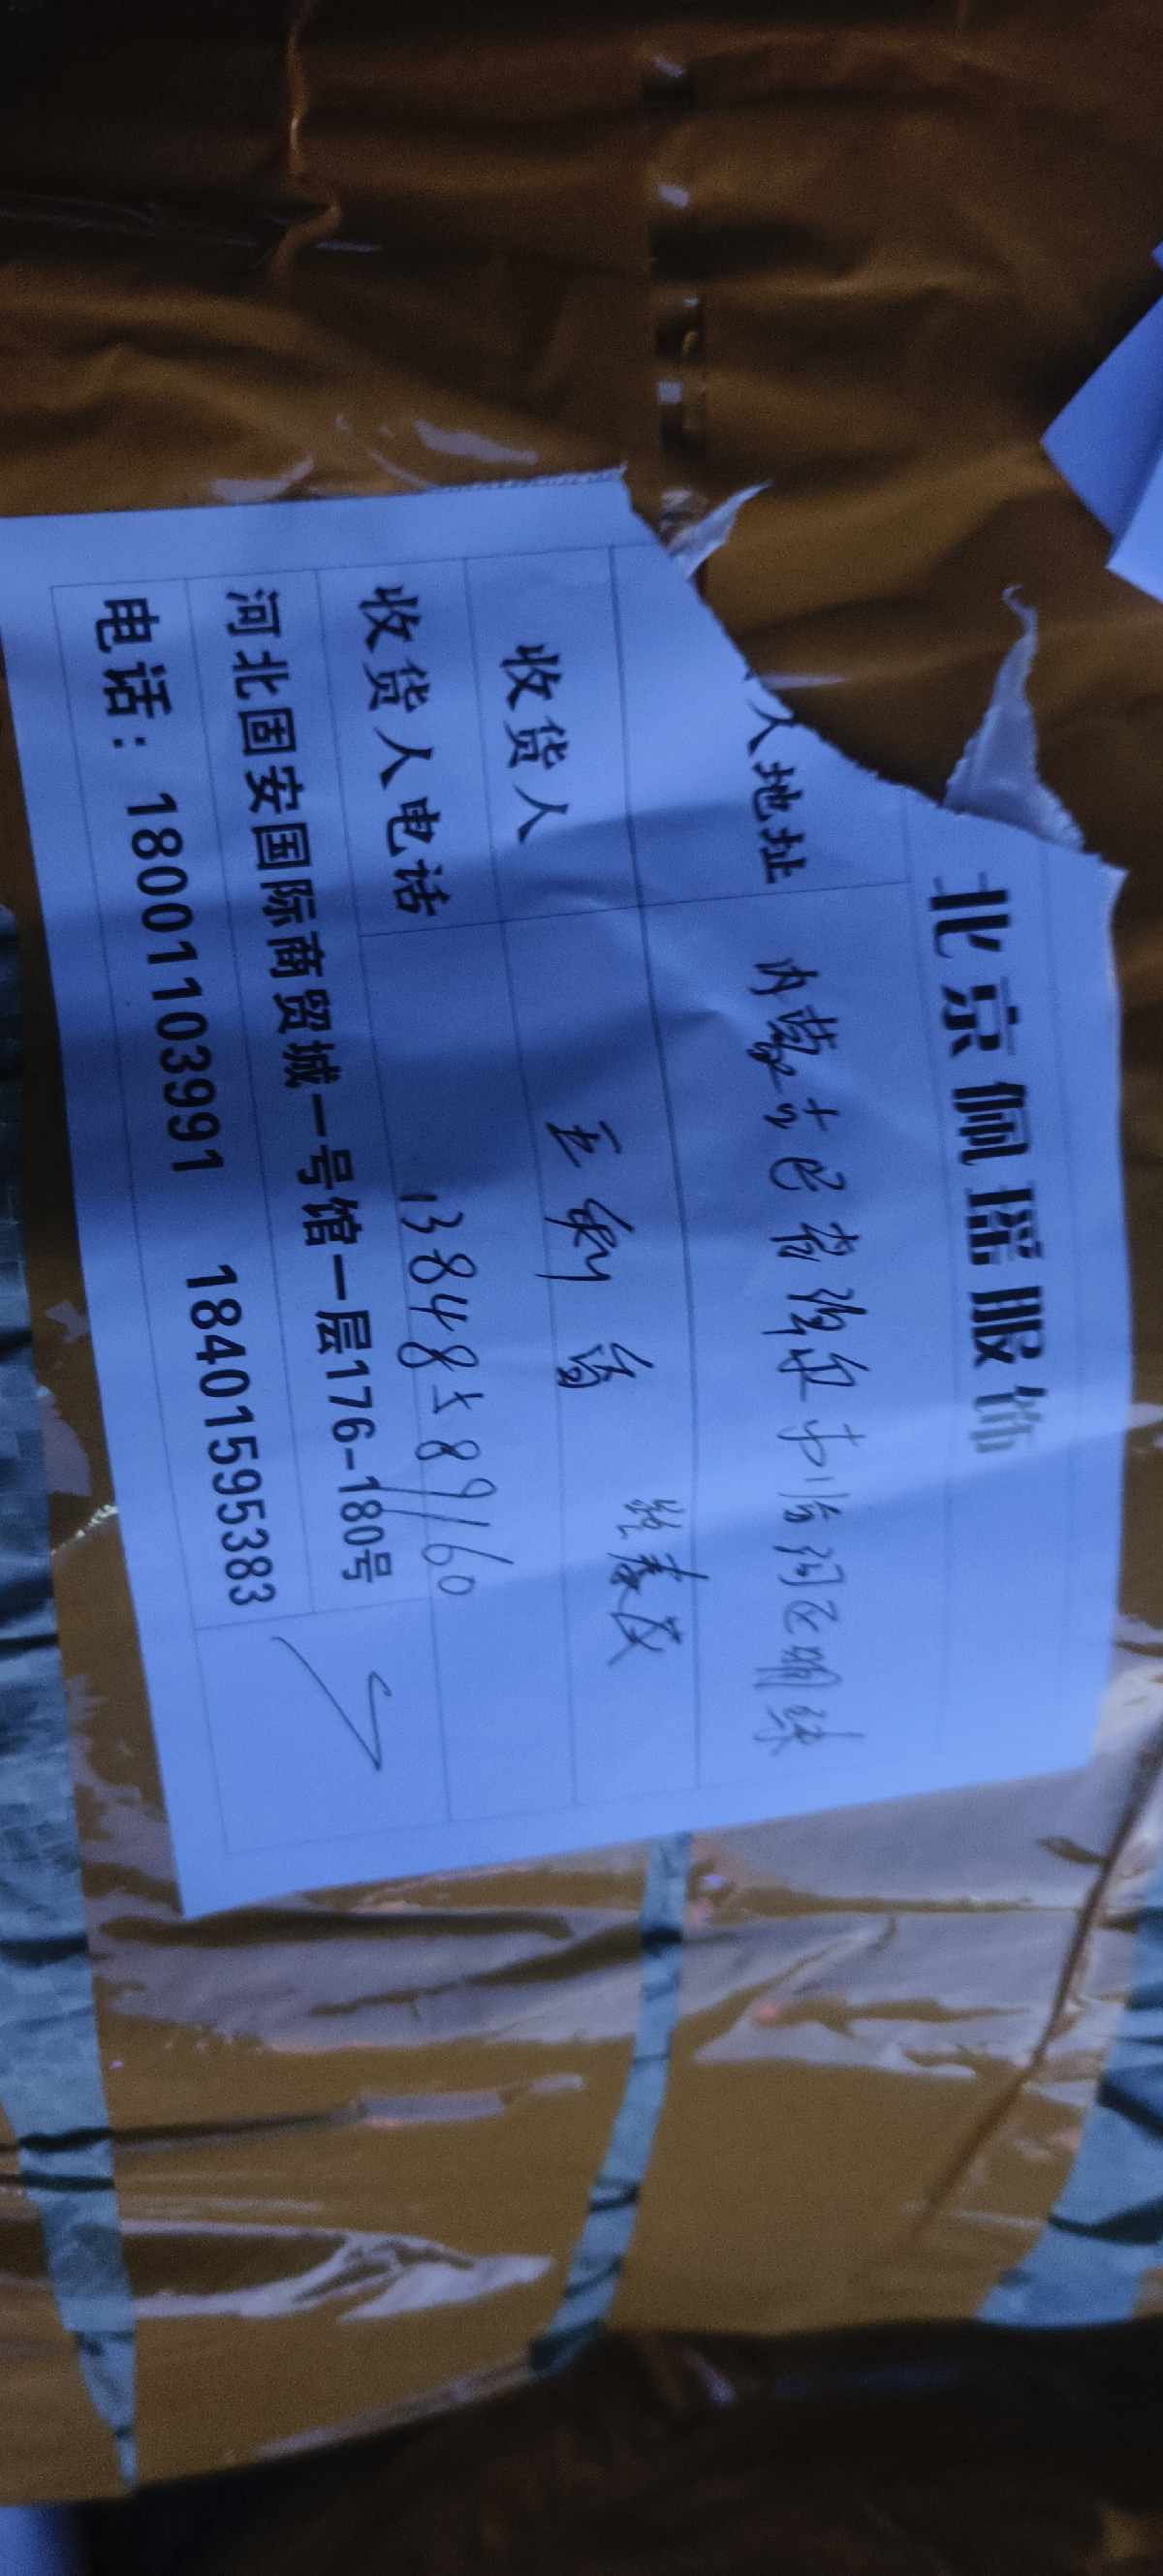 北京佩瑶服饰
人地址 内蒙古巴彦淖尔市临河区明珠
收货人 王
收货人电话 13848589160
河北固安国际商贸城一号馆一层176-180号
电话：18001103991 18401595383